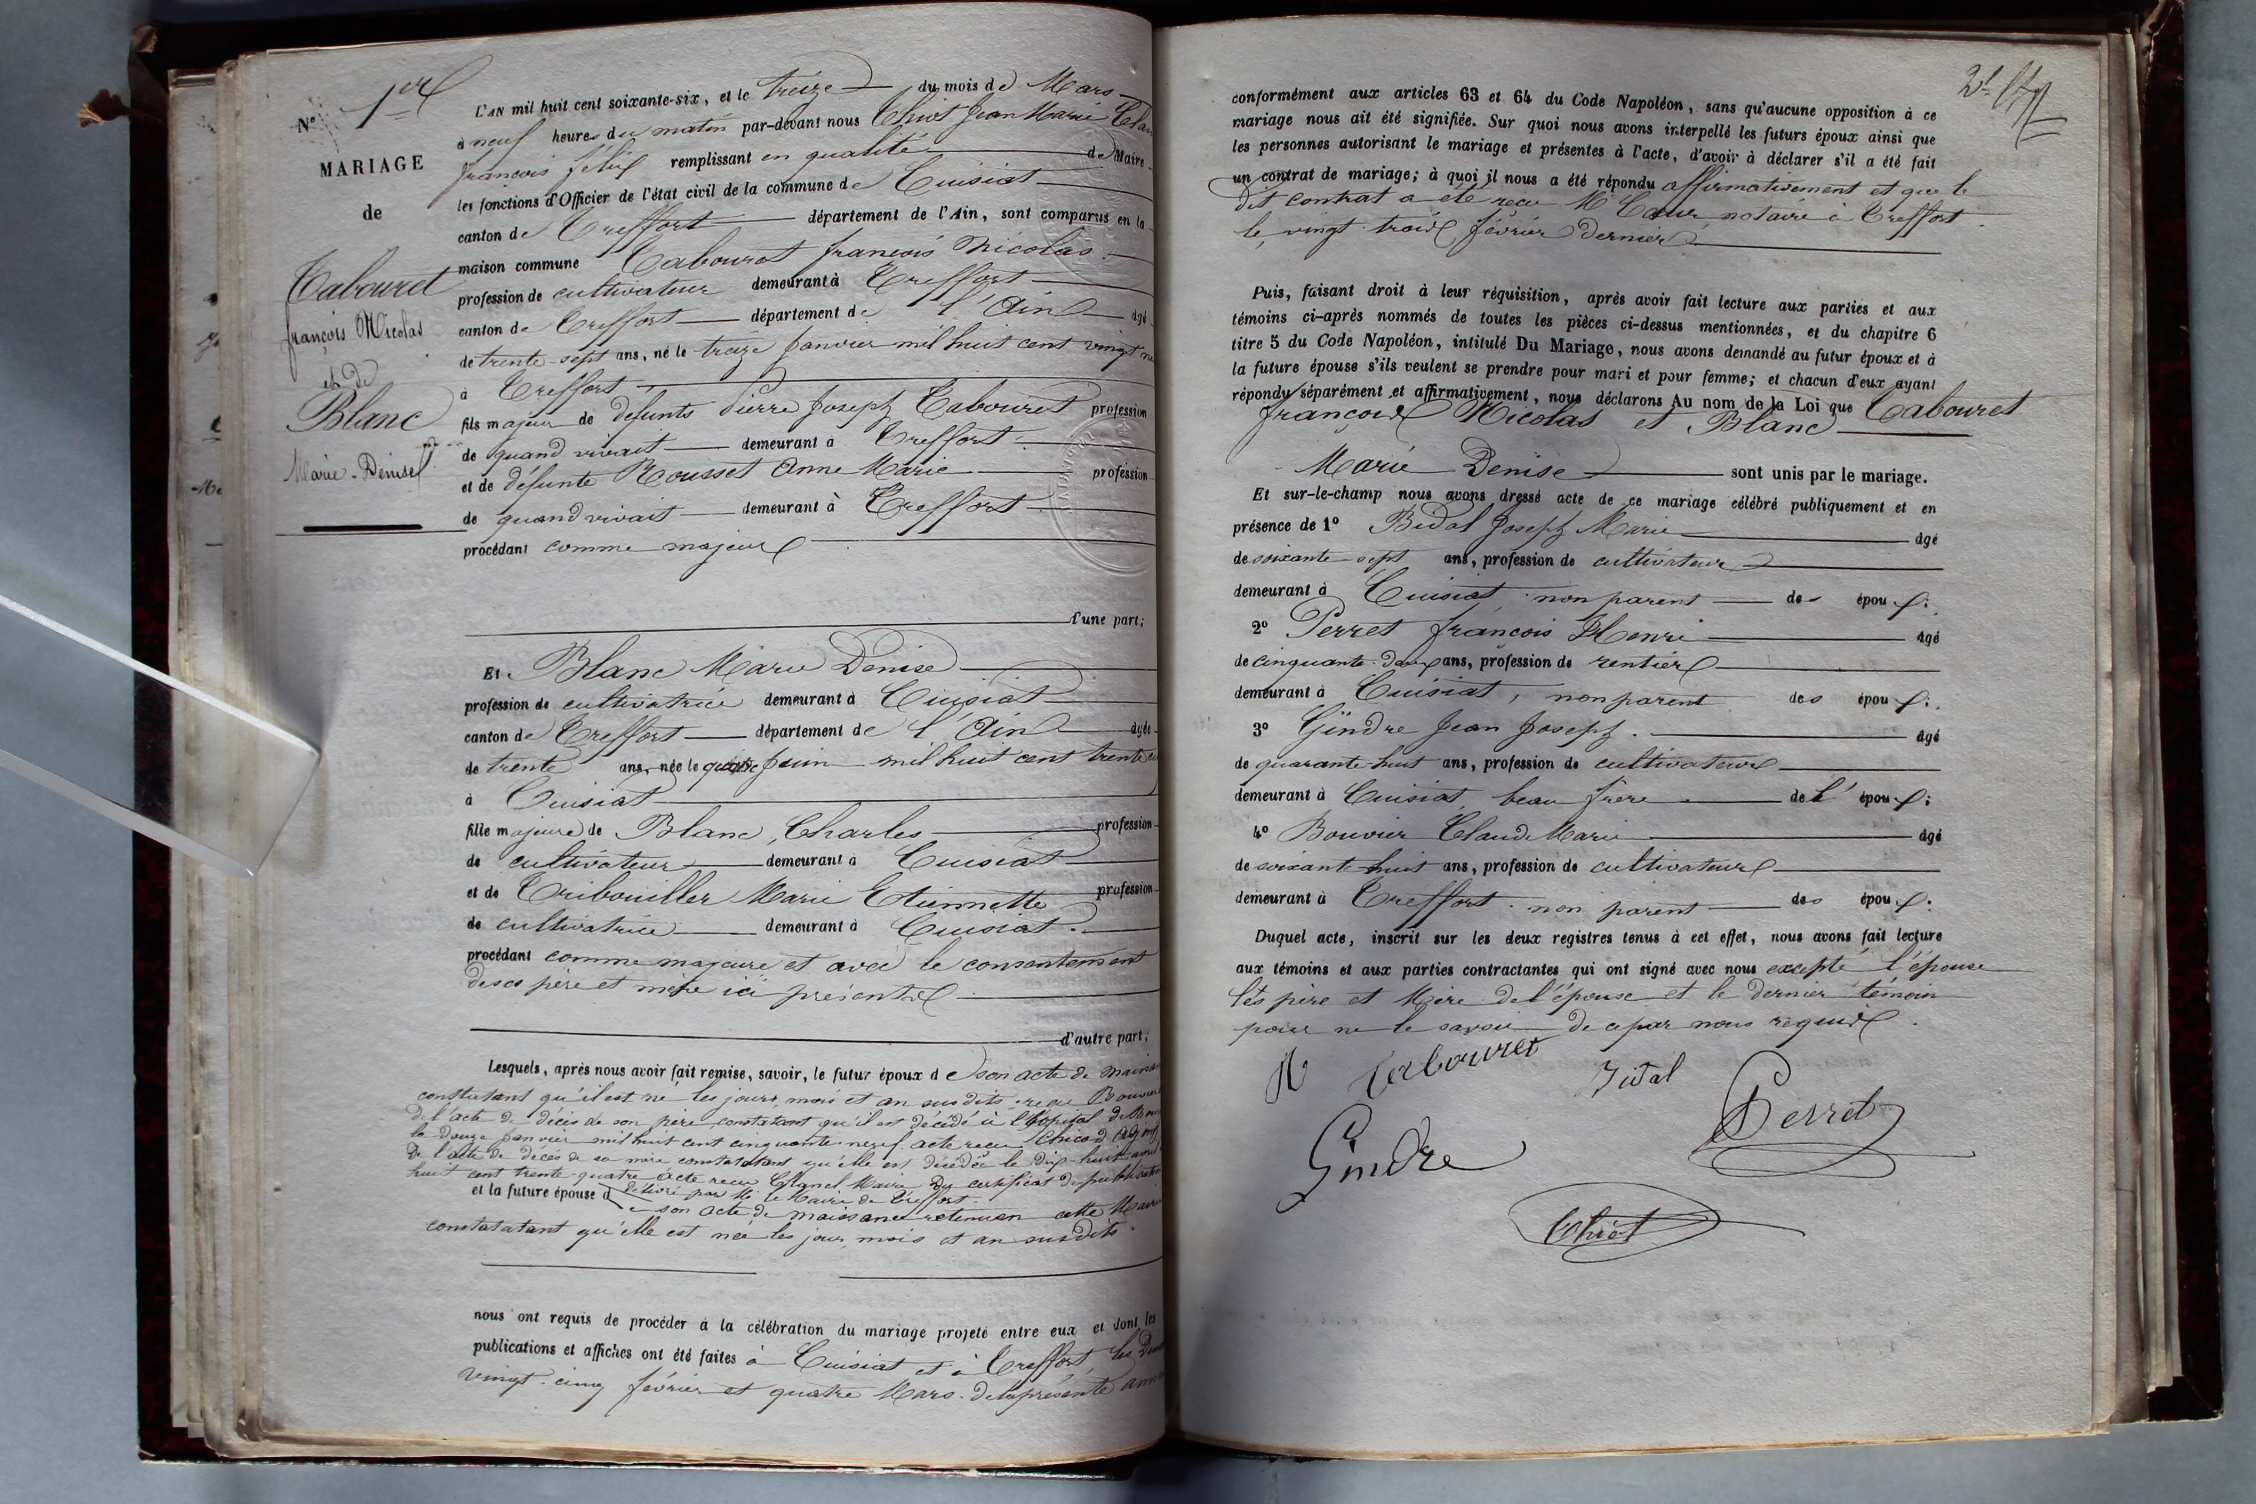 1er
N°
MARIAGE
de
Tabouret
françois Nicolas
et de
Blanc
Marie Denise
L'AN mil huit cent soixante-six, et le treize du mois de Mars
à neuf heures du matin par-devant nous Chiot Jean Marie
françois félix remplissant en qualité de Maire
les fonctions d'Officier de l'état civil de la commune de Cuisiat
canton de Treffort département de l'Ain, sont comparus en la
maison commune Tabouret françois Nicolas
profession de cultivateur demeurant à Treffort
canton de Treffort département de l'Ain âgé
de trente-sept ans, né le treize Janvier mil huit cent vingt
à Treffort
fils majeur de défunts Pierre Joseph Tabouret profession
de quand vivait demeurant à Treffort
et de défunte Rousset Anne Marie profession
de quand vivait demeurant à Treffort
procédant comme majeur
d'une part;
Et Blanc Marie Denise
profession de cultivatrice demeurant à Cuisiat
canton de Treffort département de l'Ain âgée
de trente ans, née le Juin mil huit cent trente
à Cuisiat
fille majeure de Blanc, Charles profession
de cultivateur demeurant à Cuisiat
et de Tribouiller Marie Etiennette profession
de cultivatrice demeurant à Cuisiat
procédant comme majeure et avec le consentement
de ses père et mère ici présents
d'autre part;
Lesquels, après nous avoir fait remise, savoir, le futur époux d e son acte de
constatant qu'il est né les jours, mois et an susdits reçu
de l'acte de décès de son père constatant qu'il est décédé à l'hopital de
le douze Janvier mil huit cent cinquante-neuf acte reçu
de l'acte de décès de sa mère constatant qu'elle est décédée le dix-huit
huit cent trente-quatre acte reçu Maire du certificat de
délivré par M. le Maire de Treffort
et la future épouse d e son acte de naissance retenu en cette Mairie
constatatant qu'elle est née les jours mois et an susdits
nous ont requis de procéder à la célébration du mariage projeté entre eux et dont les
publications et affiches ont été faites à Cuisiat et à Treffort, les
vingt-cinq février et quatre Mars de la présente
conformément aux articles 63 et 64 du Code Napoléon, sans qu'aucune opposition à ce
mariage nous ait été signifiée. Sur quoi nous avons interpellé les futurs époux ainsi que
les personnes autorisant le mariage et présentes à l'acte, d'avoir à déclarer s'il a été fait
un contrat de mariage; à quoi il nous a été répondu affirmativement et que le
dit contrat a été reçu Me notaire à Treffort
le vingt-trois février dernier
Puis, faisant droit à leur réquisition, après avoir fait lecture aux parties et aux
témoins ci-après nommés de toutes les pièces ci-dessus mentionnées, et du chapitre 6
titre 5 du Code Napoléon, intitulé Du Mariage, nous avons demandé au futur époux et à
la future épouse s'ils veulent se prendre pour mari et pour femme; et chacun d'eux ayant
répondu séparément et affirmativement, nous déclarons Au nom de la Loi que Tabouret
françois Nicolas et Blanc
Marie Denise sont unis par le mariage.
Et sur-le-champ nous avons dressé acte de ce mariage célébré publiquement et en
présence de 1° Bidal Joseph Marie âgé
de soixante-sept ans, profession de cultivateur
demeurant à Cuisiat non parent des époux:
2° Perret françois Henri âgé
de cinquante-deux ans, profession de rentier
demeurant à Cuisiat, non parent des époux:
3° Gindre Jean Joseph âgé
de quarante-huit ans, profession de cultivateur
demeurant à Cuisiat, beau frère de l' époux;
4° Bouvier Claude Marie âgé
de soixante-huit ans, profession de cultivateur
demeurant à Treffort non parent des époux:
Duquel acte, inscrit sur les deux registres tenus à cet effet, nous avons fait lecture
aux témoins et aux parties contractantes qui ont signé avec nous excepté l'épouse
les père et Mère de l'épouse et le dernier témoin
pour ne le savoir de ce par nous requis.
N Tabouret
Bidal
Perret
Gindre
Chiot